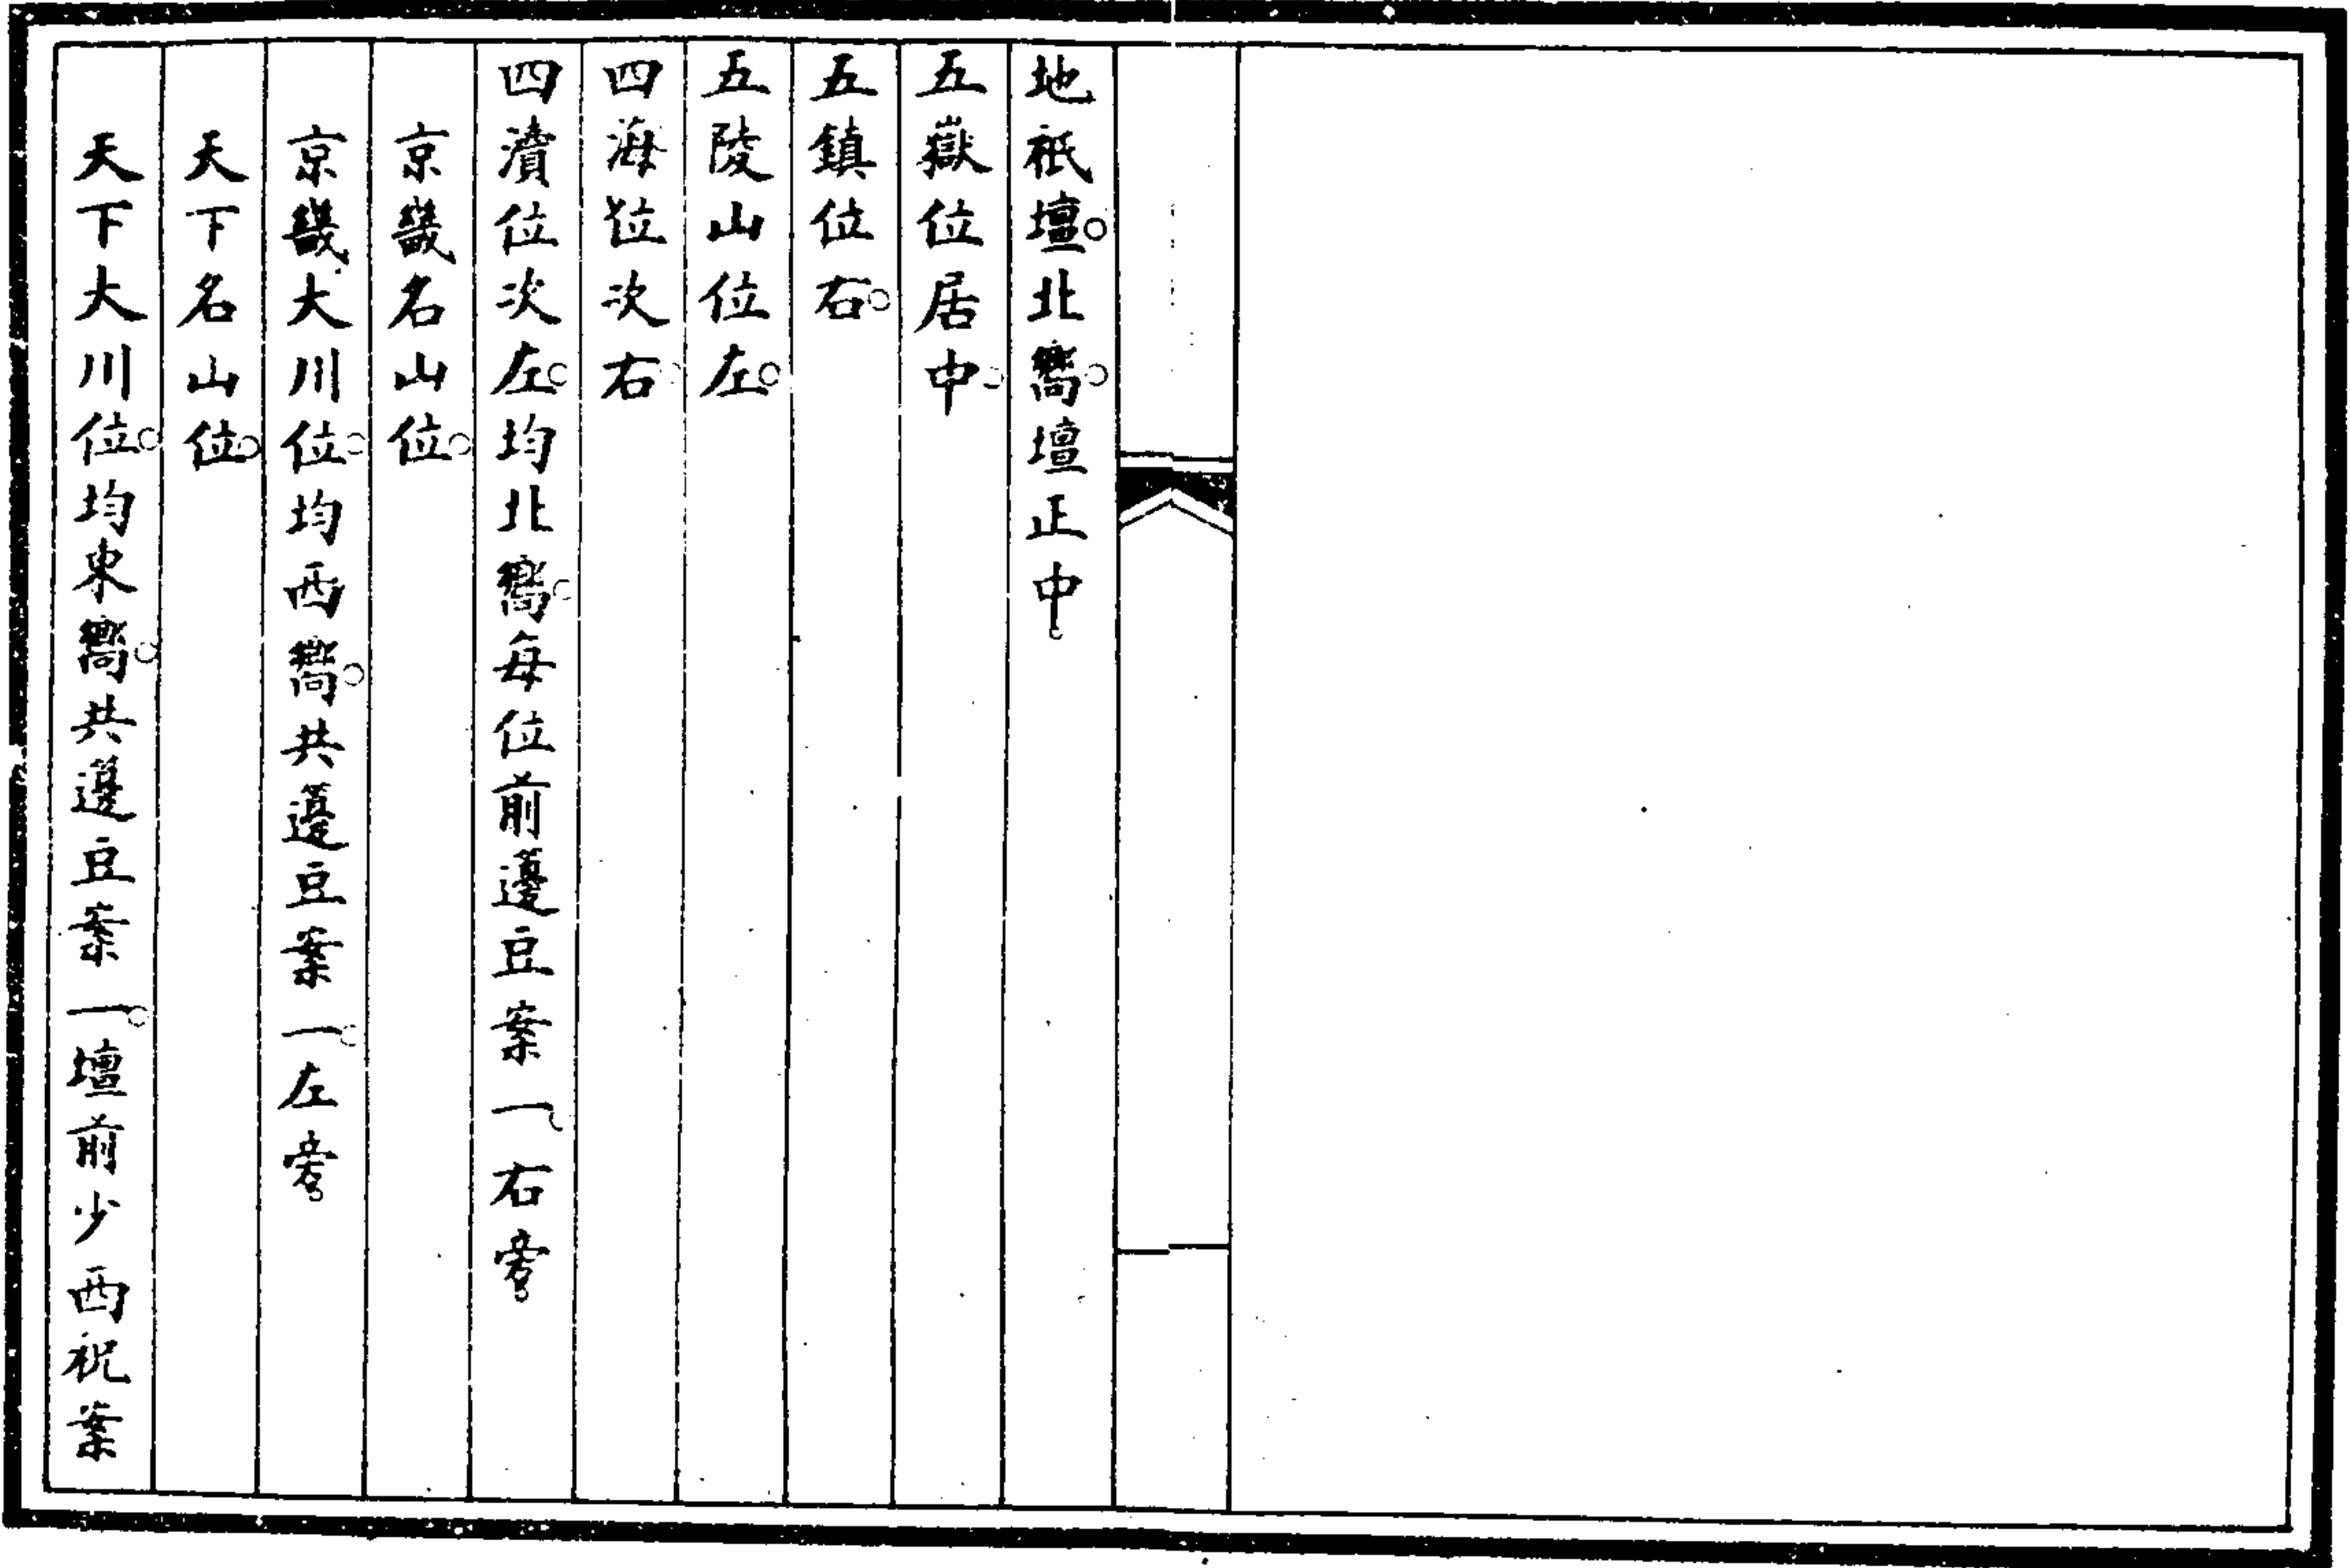 地祇壇。北嚮。壇正中。
五嶽位居中。
五鎮位右。
五陵山位左。
四海位次右。
四瀆位次左。均北嚮。每位前籩豆案一。右旁。
京畿名山位。
京畿大川位。均西嚮。共籩豆案一。左旁。
天下名山位。
天下大川位。均東嚮。共籩豆案一。壇前少西祝案